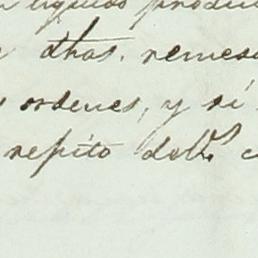 liquido produ
dhas. remes
ordenes, y si
repito